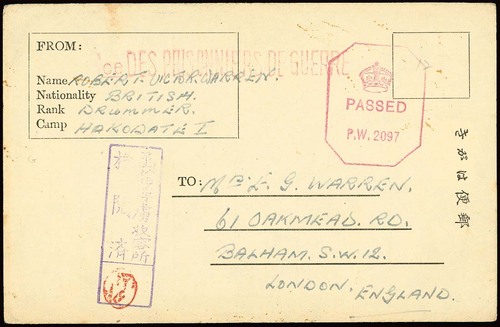 FROM:
ce DES PRISONNIERS DE GUERRE
Name ROBERT VICTOR WARREN.
Nationality BRITISH.
Rank DRUMMER.
Camp HAKODATE I
PASSED
P.W. 2097
郵便はがき
檢閲済
TO: Mr L. G. WARREN.
61 OAKMEAD. RD.
BALHAM. S.W.12.
LONDON. ENGLAND.